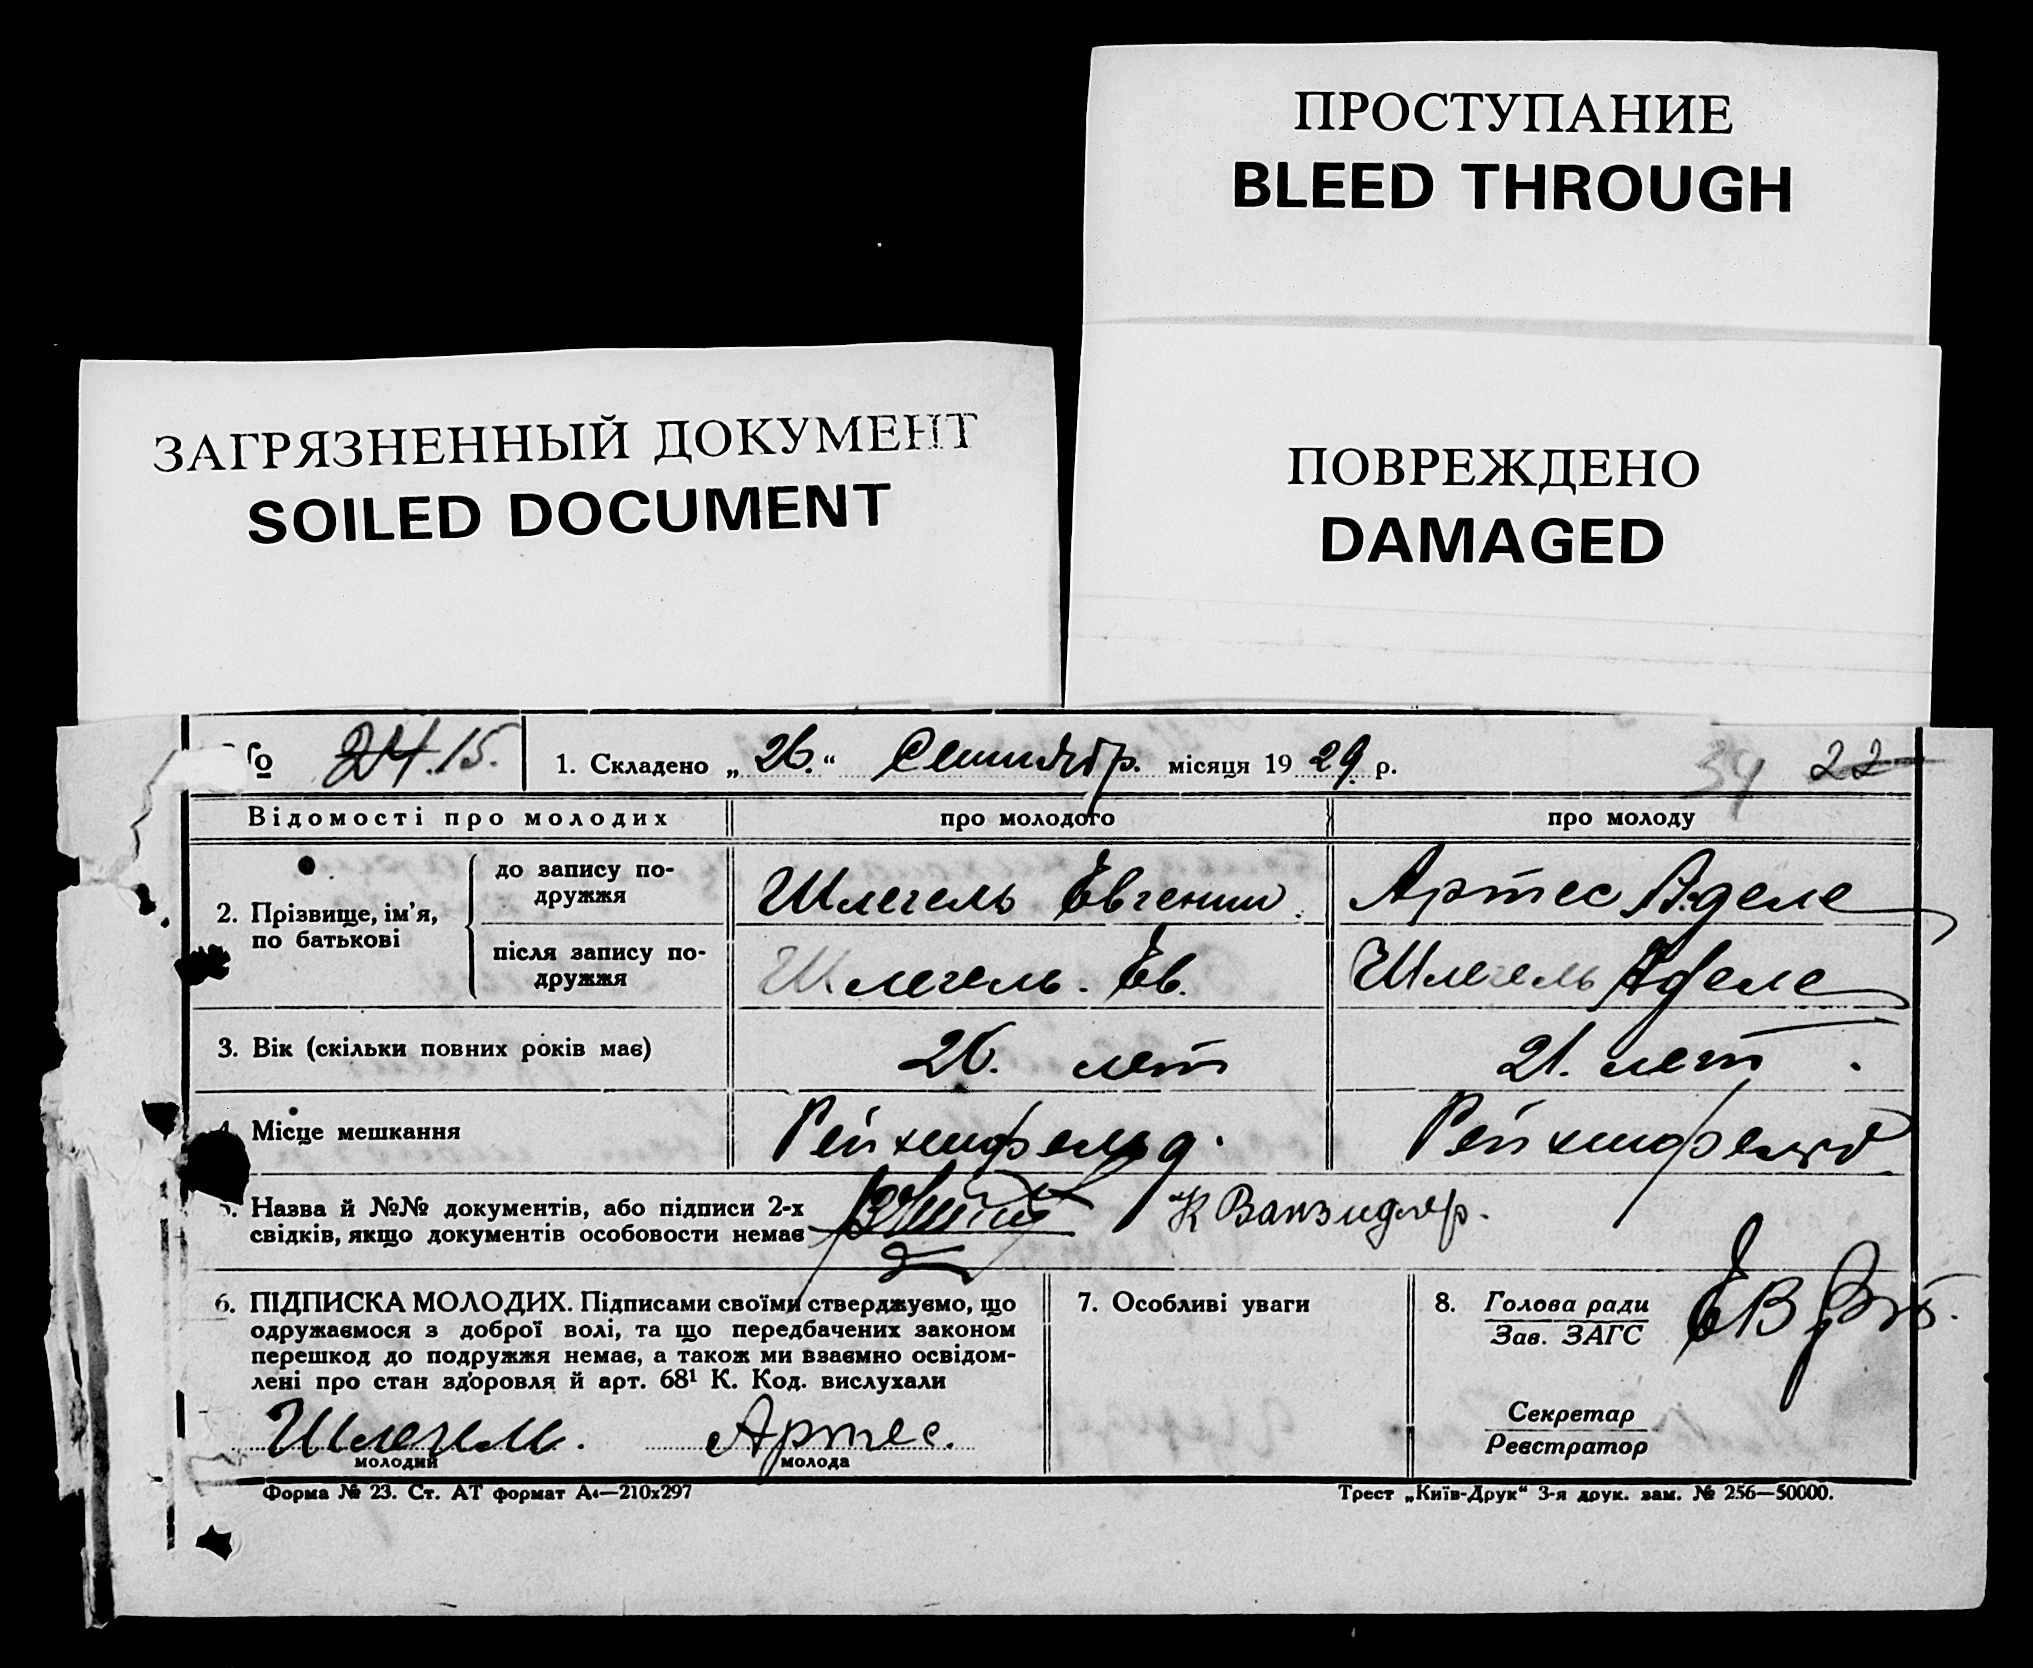 ПРОСТУПАНИЕ
BLEED THROUGH
ЗАГРЯЗНЕННЫЙ ДОКУМЕНТ
SOILED DOCUMENT
ПОВРЕЖДЕНО
DAMAGED
№ 24. 15. 1. Складено „ 26. “ Сентябр. місяця 19 29 р. 34 22
Відомості про молодих про молодого про молоду
2. Прізвище, ім’я, по батькові
до запису по-
дружжя
Шлегель Евгении. Артес Аделе
після запису по-
дружжя
Шлегель. Ев. Шлегель Аделе
3. Вік (скільки повних років має) 26. лет 21. лет.
4. Місце мешкання Рейхенфельд. Рейхенфельд
5. Назва й №№ документів, або підписи 2-х
свідків, якщо документів особовости немає
К Ванзидлер.
6. ПІДПИСКА МОЛОДИХ. Підписами своїми стверджуємо, що
одружаємося з доброї волі, та що передбачених законом
перешкод до подружжя немає, а також ми взаємно освідом-
лені про стан здоровля й арт. 68¹ К. Код. вислухали
Шлегель. Артес.
молодий молода
7. Особливі уваги
8. Голова ради
Зав. ЗАГС
Секретар
Реєстратор
Форма № 23. Ст. АТ формат А4—210х297 Трест „Київ-Друк“ 3-я друк. зам. № 256—50000.